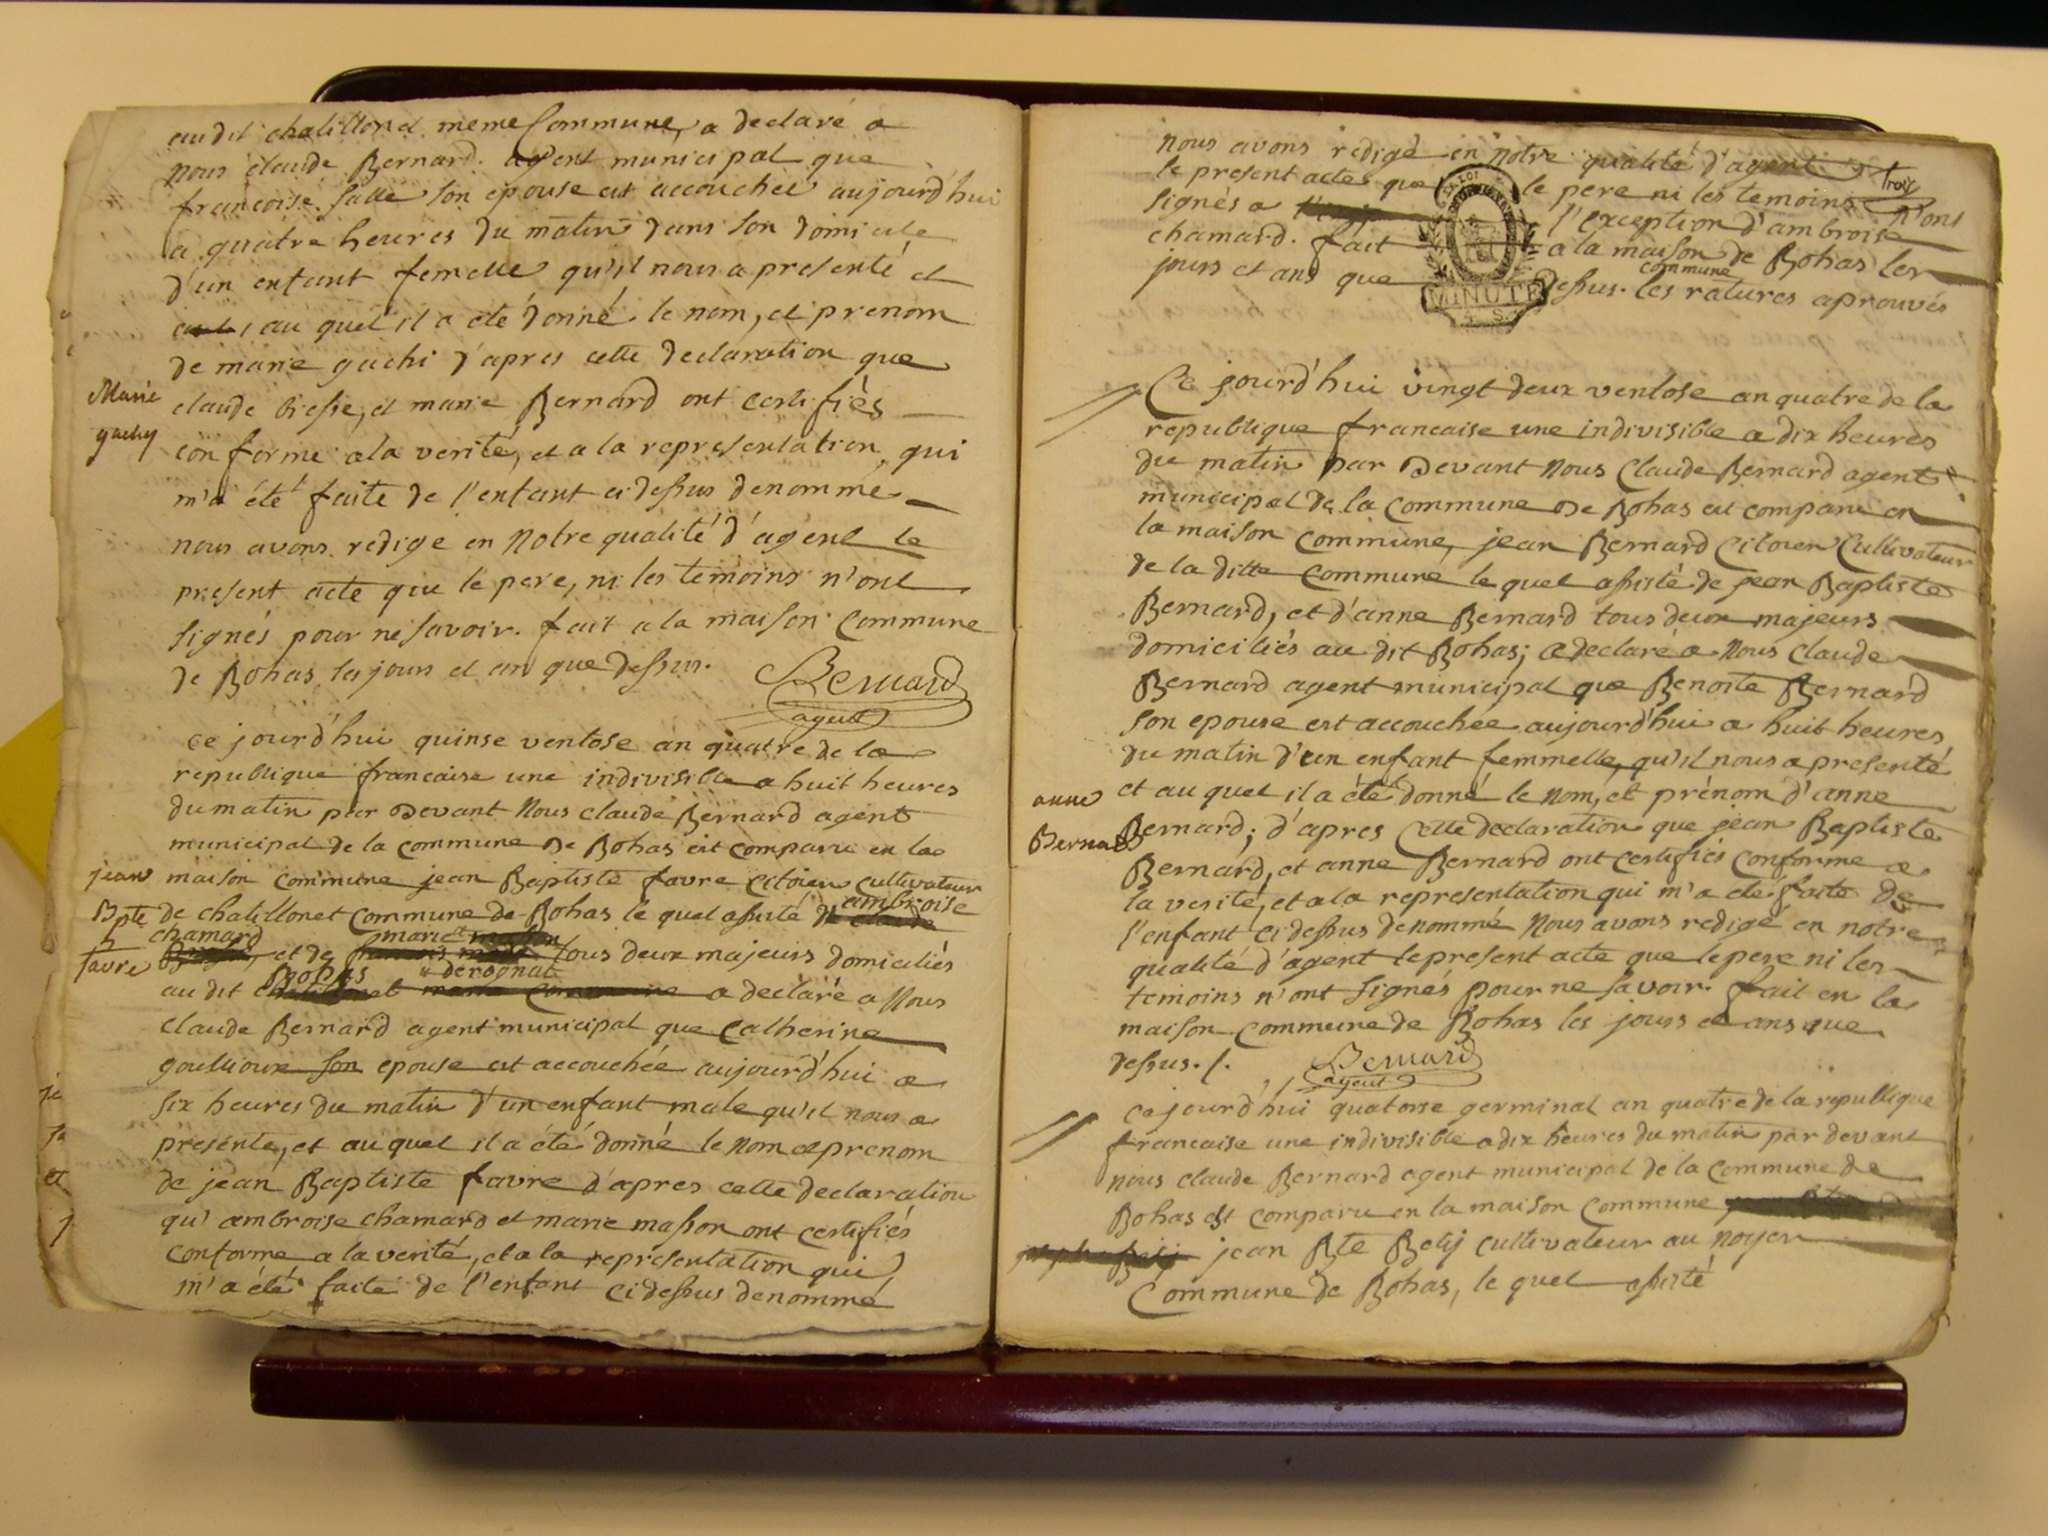 au dit chatillonet meme Commune, a declaré a
nous claude Bernard. agent municipal que
francoise. son epouse est accouchée aujourd'hui
a quatre heures du matin dans son domicile
d'un enfant femelle qu'il nous a presenté et
au quel il a été donné le nom, et prenom
de marie gachi d'apres cette declaration que
Marie
gachy
claude et marie Bernard ont certifiés
conforme a la verité, et a la representation, qui
m'a été faite de l'enfant ci dessus denommé
nous avons redigé en notre qualité d'agent le
present acte que le pere, ni les temoins n'ont
signés pour ne savoir. fait a la maison commune
de Bohas les jours et an que dessus.
Bernard
agent
ce jourd'hui quinse ventose an quatre de la
republique francaise une indivisible a huit heures
du matin par devant nous claude Bernard agent
municipal de la commune de Bohas est comparu en la
jean
Bpte
favre
maison commune jean Baptiste favre citoien cultivateur
de chatillonet commune de Bohas le quel assisté d ambroise
chamard et de marie masson tous deux majeurs domiciliés
au dit Bohas derognat a declaré a nous
claude Bernard agent municipal que catherine
gouilloux son epouse est accouchée aujourd'hui a
six heures du matin d'un enfant male qu'il nous a
presenté, et au quel il a été donné le nom et prenom
de jean Baptiste favre d'apres cette declaration
qu'ambroise chamard et marie masson ont certifiés
conforme a la verité, et a la representation qui
m'a été faite de l'enfant ci dessus denommé
nous avons redigé en notre qualité d'agent
le present acte que le pere ni les temoins n'ont
signés a l'exception d'ambroise
chamard. fait a la maison commune de Bohas les
jours et ans que dessus. les ratures aprouvés
LA LOI
MINUTE
Ce jourd'hui vingt deux ventose an quatre de la
republique francaise une indivisible a dix heures
du matin par devant nous Claude Bernard agent
municipal de la commune de Bohas est comparu en
la maison commune, jean Bernard Citoien Cultivateur
de la ditte commune le quel assisté de jean Baptiste
Bernard, et d'anne Bernard tous deux majeurs
domiciliés au dit Bohas; a declaré a nous claude
Bernard agent municipal que Benoite Bernard
son epouse est accouchée aujourd'hui a huit heures
du matin d'un enfant femmelle, qu'il nous a presenté
et au quel il a été donné le nom, et prénom d'anne
anne
Bernard
Bernard; d'apres Cette declaration que jean Baptiste
Bernard, et anne Bernard ont certifiés conforme a
la verité, et a la representation qui m'a été faite de
l'enfant ci dessus denommé nous avons redigé en notre
qualité d'agent le present acte que le pere ni les
temoins n'ont signés pour ne savoir. fait en la
maison commune de Bohas les jours et ans que
dessus./.
Bernard
agent
ce jourd'hui quatorse germinal an quatre de la republique
francaise une indivisible a dix heures du matin par devant
nous claude Bernard agent municipal de la commune de
Bohas est comparu en la maison commune
jean Bte Betij cultivateur au noyer
Commune de Bohas, le quel assisté